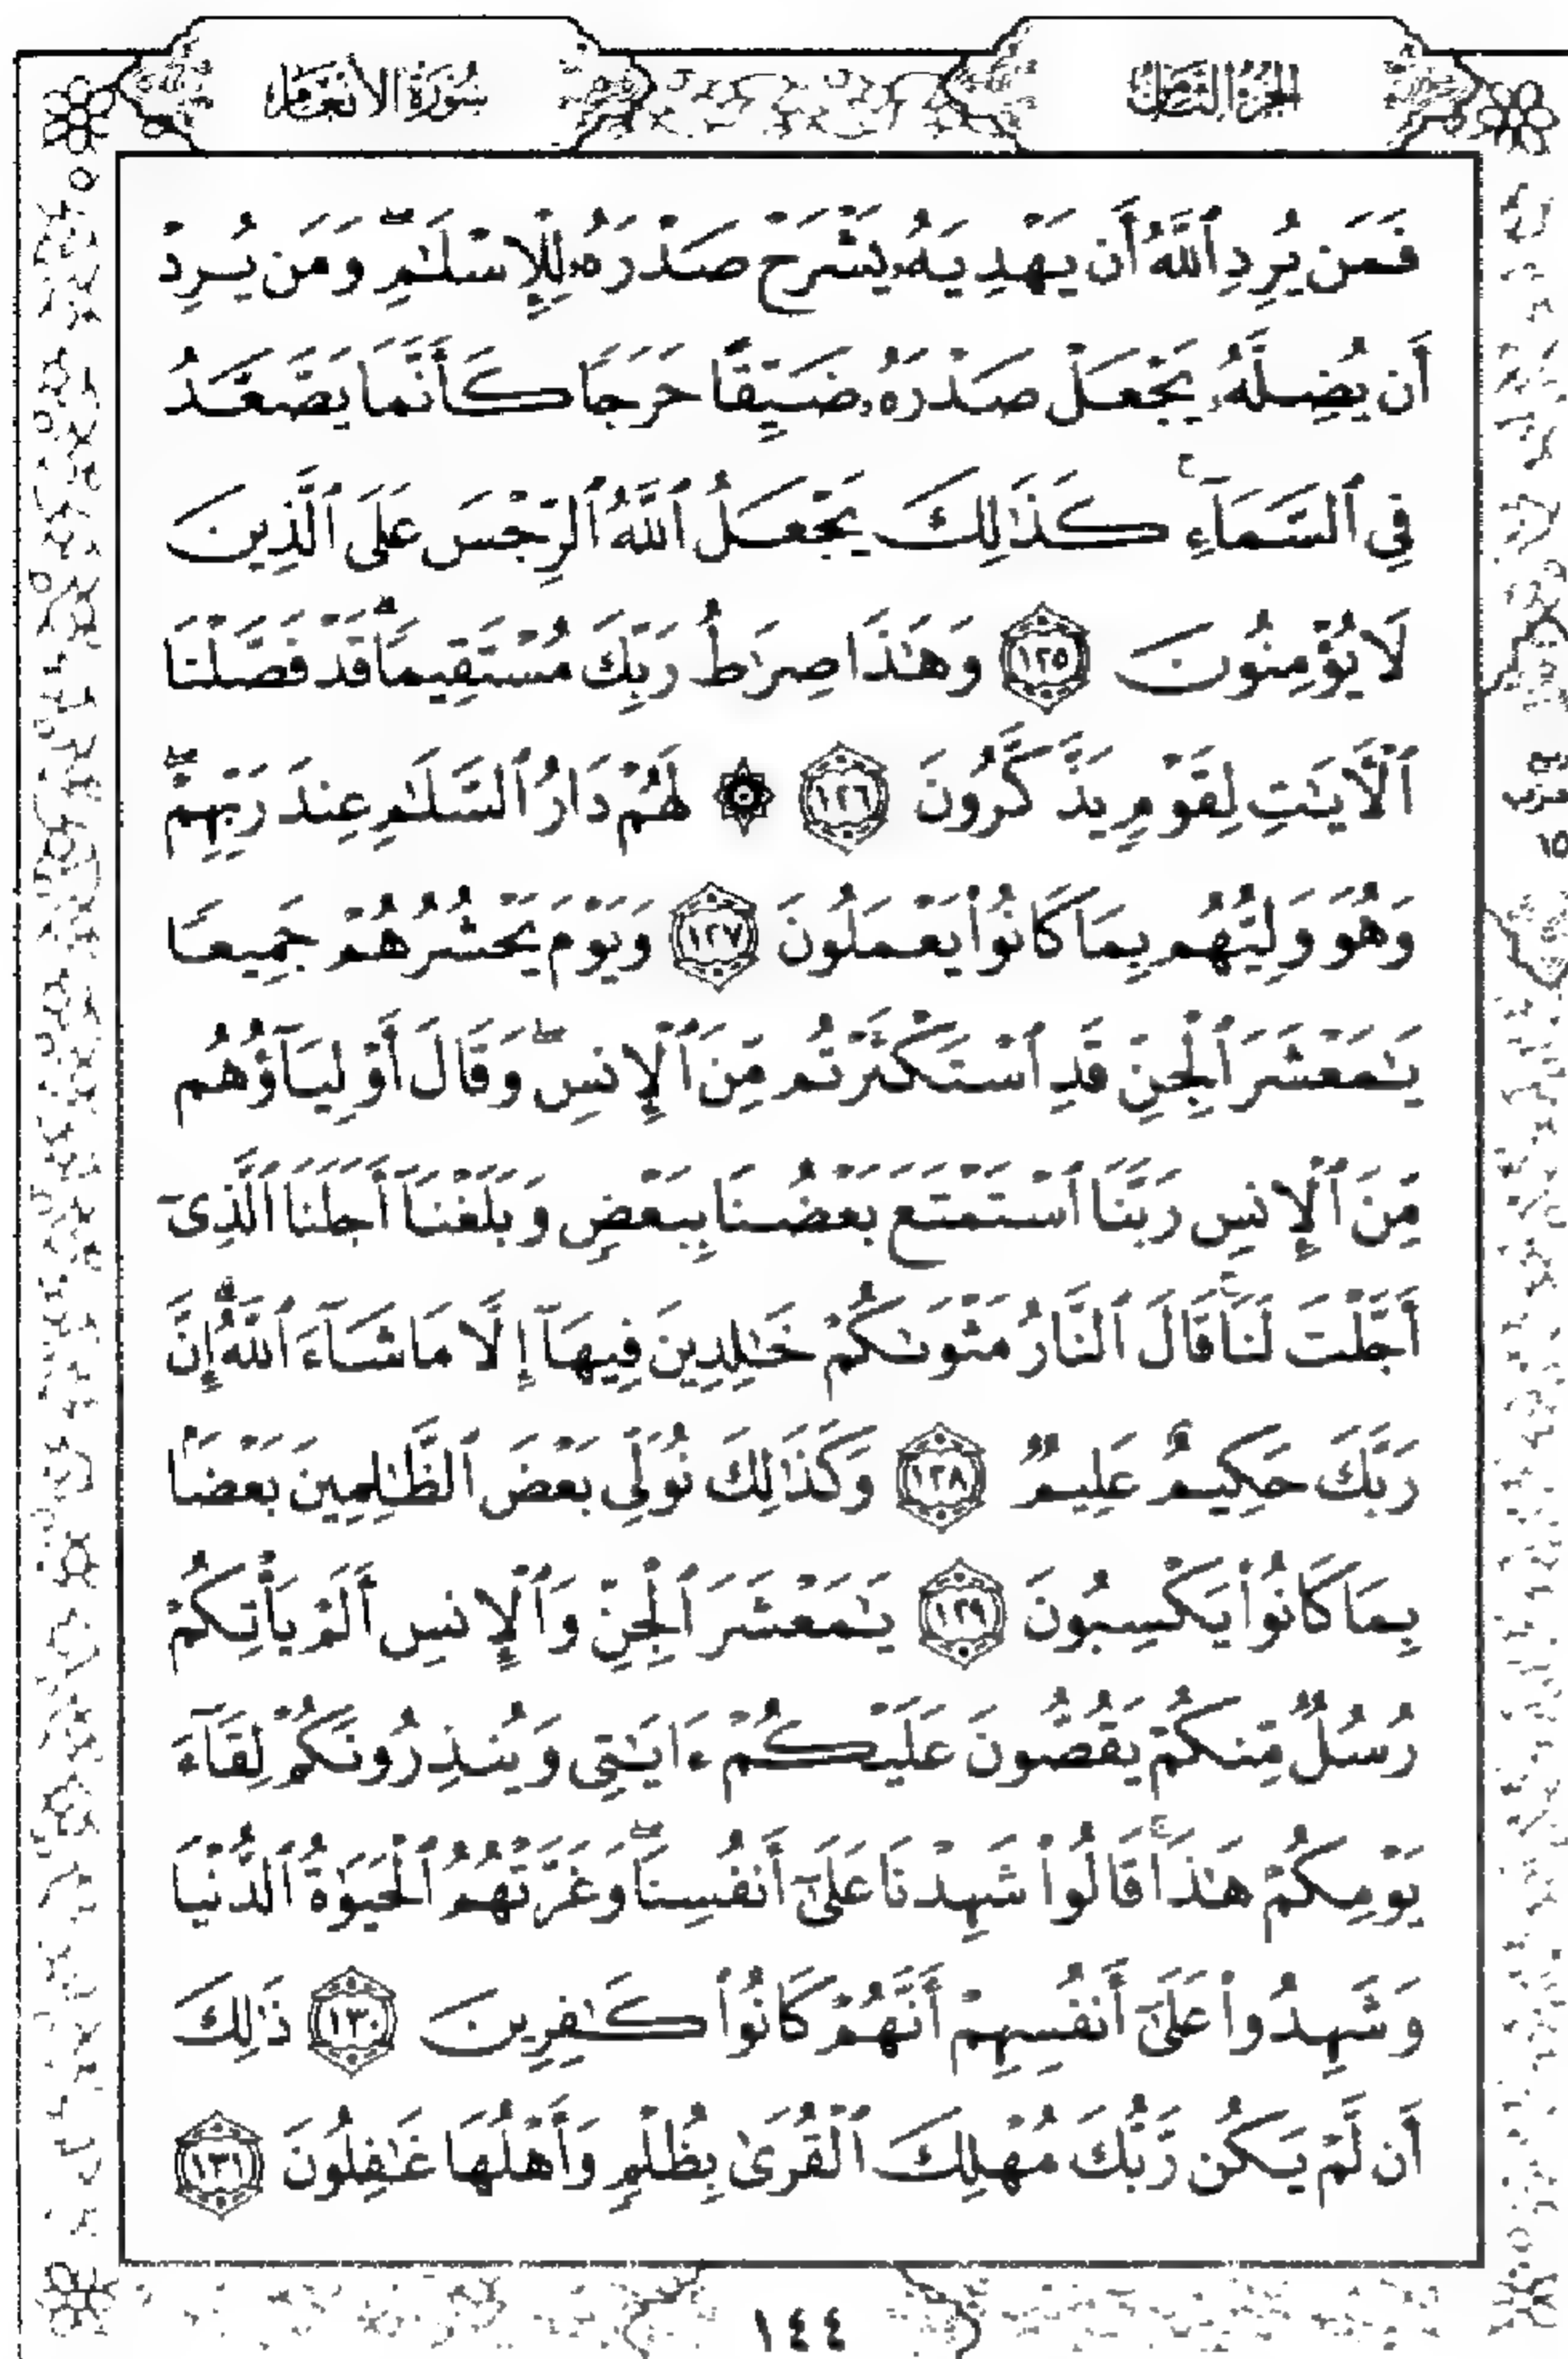 الجزء الثامن
سورة الأنعام
فَمَن يُرِدِ ٱللَّهُ أَن يَهْدِيَهُۥ يَشْرَحْ صَدْرَهُۥ لِلْإِسْلَٰمِۖ وَمَن يُرِدْ
أَن يُضِلَّهُۥ يَجْعَلْ صَدْرَهُۥ ضَيِّقًا حَرَجًا كَأَنَّمَا يَصَّعَّدُ
فِي ٱلسَّمَآءِۚ كَذَٰلِكَ يَجْعَلُ ٱللَّهُ ٱلرِّجْسَ عَلَى ٱلَّذِينَ
لَا يُؤْمِنُونَ ١٢٥ وَهَٰذَا صِرَٰطُ رَبِّكَ مُسْتَقِيمًاۗ قَدْ فَصَّلْنَا
ٱلْأٓيَٰتِ لِقَوْمٍ يَذَّكَّرُونَ ١٢٦ ۞ لَهُمْ دَارُ ٱلسَّلَٰمِ عِندَ رَبِّهِمْۖ
وَهُوَ وَلِيُّهُم بِمَا كَانُوا۟ يَعْمَلُونَ ١٢٧ وَيَوْمَ يَحْشُرُهُمْ جَمِيعًا
يَٰمَعْشَرَ ٱلْجِنِّ قَدِ ٱسْتَكْثَرْتُم مِّنَ ٱلْإِنسِۖ وَقَالَ أَوْلِيَآؤُهُم
مِّنَ ٱلْإِنسِ رَبَّنَا ٱسْتَمْتَعَ بَعْضُنَا بِبَعْضٍ وَبَلَغْنَآ أَجَلَنَا ٱلَّذِىٓ
أَجَّلْتَ لَنَاۚ قَالَ ٱلنَّارُ مَثْوَىٰكُمْ خَٰلِدِينَ فِيهَآ إِلَّا مَا شَآءَ ٱللَّهُۗ إِنَّ
رَبَّكَ حَكِيمٌ عَلِيمٌ ١٢٨ وَكَذَٰلِكَ نُوَلِّى بَعْضَ ٱلظَّٰلِمِينَ بَعْضًۢا
بِمَا كَانُوا۟ يَكْسِبُونَ ١٢٩ يَٰمَعْشَرَ ٱلْجِنِّ وَٱلْإِنسِ أَلَمْ يَأْتِكُمْ
رُسُلٌ مِّنكُمْ يَقُصُّونَ عَلَيْكُمْ ءَايَٰتِى وَيُنذِرُونَكُمْ لِقَآءَ
يَوْمِكُمْ هَٰذَاۚ قَالُوا۟ شَهِدْنَا عَلَىٰٓ أَنفُسِنَاۖ وَغَرَّتْهُمُ ٱلْحَيَوٰةُ ٱلدُّنْيَا
وَشَهِدُوا۟ عَلَىٰٓ أَنفُسِهِمْ أَنَّهُمْ كَانُوا۟ كَٰفِرِينَ ١٣٠ ذَٰلِكَ
أَن لَّمْ يَكُن رَّبُّكَ مُهْلِكَ ٱلْقُرَىٰ بِظُلْمٍ وَأَهْلُهَا غَٰفِلُونَ ١٣١
١٤٤